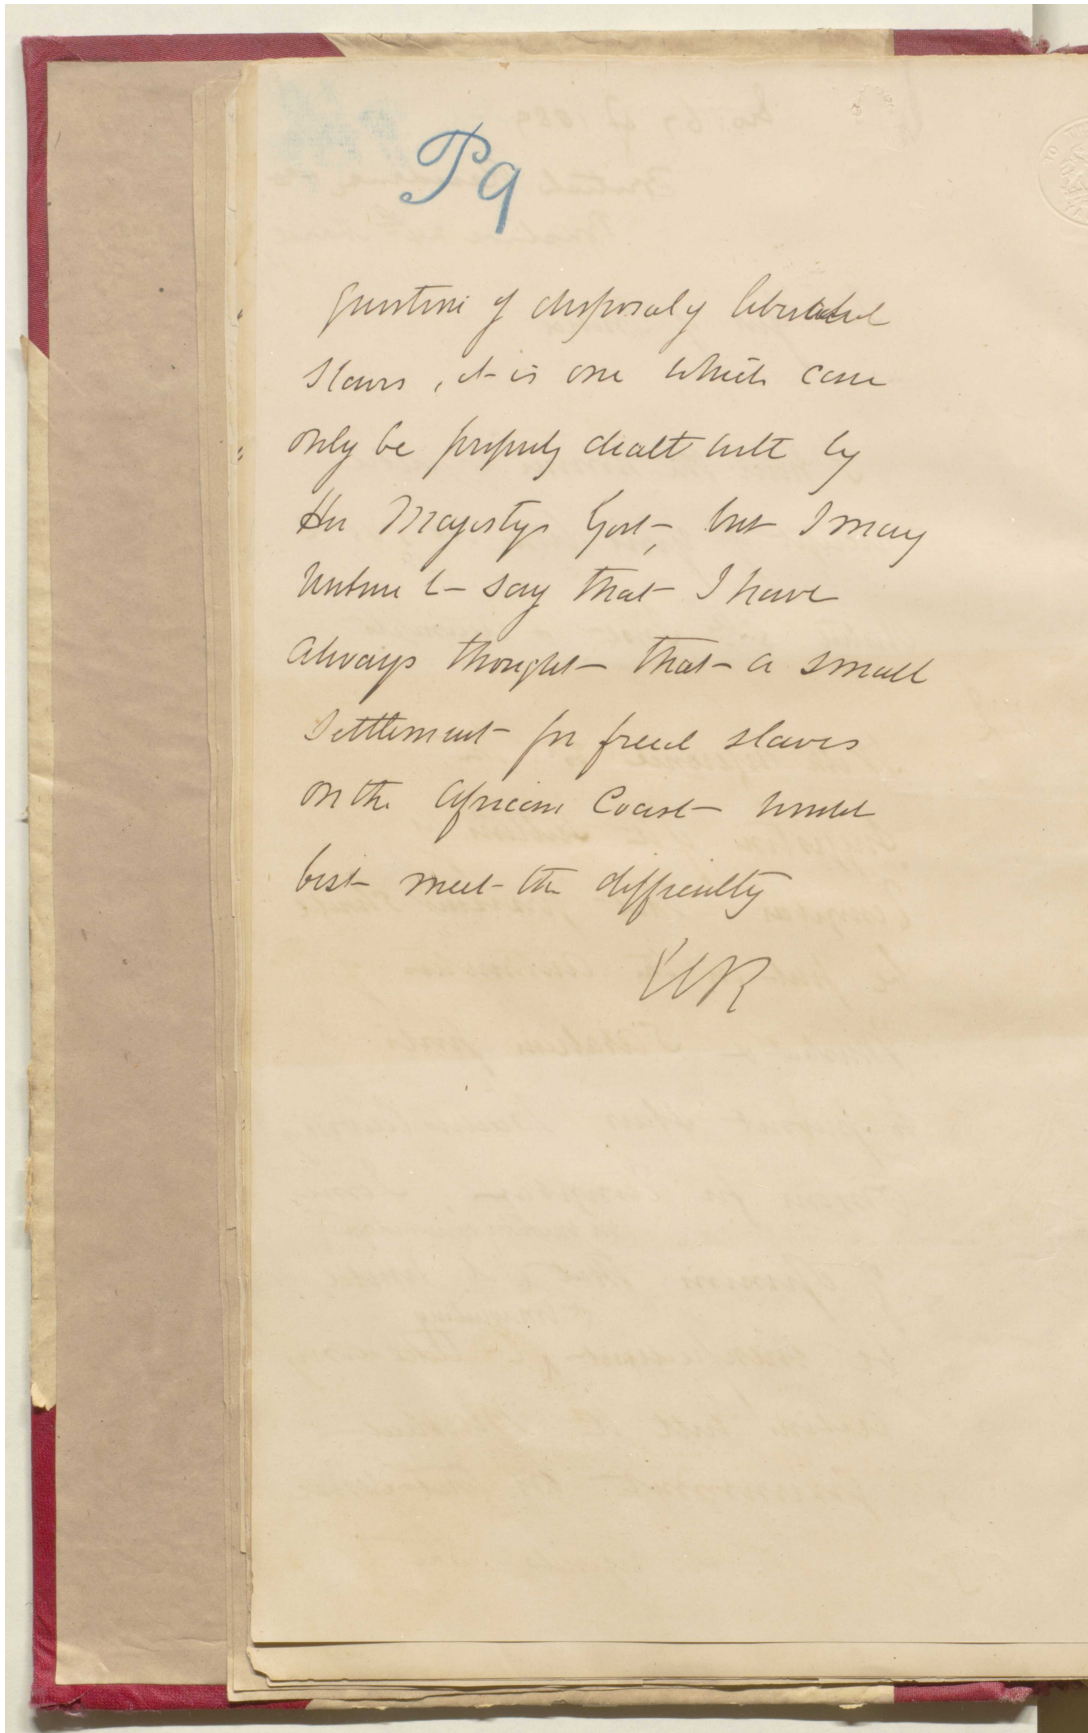 P9
question of disposal of liberated
slaves, it is one which can
only be properly dealt with by
Her Majestys Govt, but I may
venture to say that I have
always thought that a small
settlement for freed slaves
on the African Coast would
best meet the difficulty